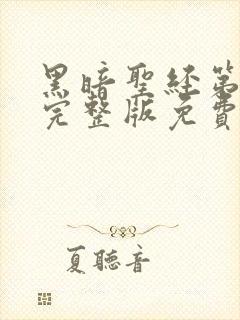 黑暗聖經第
完整版免費
夏聽音